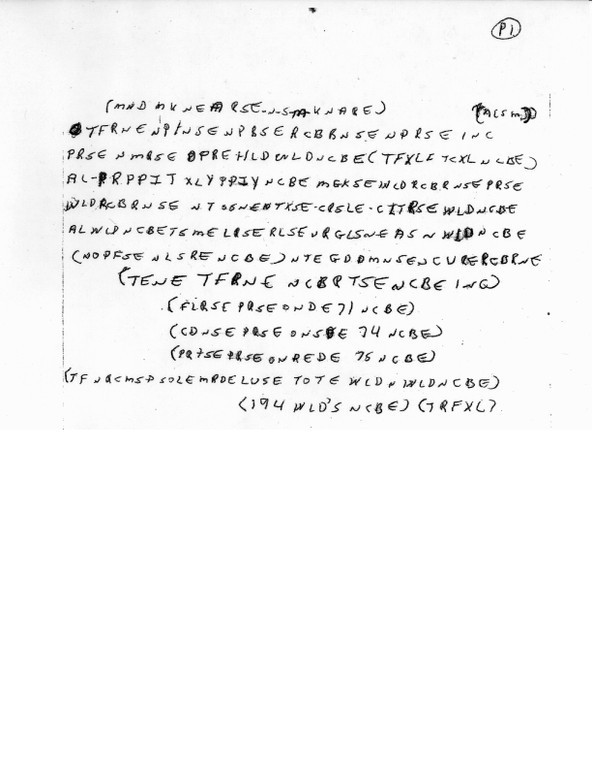 P1
(MND MKNEARSE-N-S-TA-KNARE) (ACSM)
TFRNENPINSENPBSERCBRNSENPRSEINC
PRSENMRSEOPREHLDWLDNCBE(TFXLFTCXLNCBE)
AL-PRPPITXLYPPIYNCBEMGKSEWLDRCBRNSEPRSE
WLDRCBRNSENTOSNENTXSE-CRSLE-CITRSEWLDNCBE
ALWLDNCBETSMELRSERLSEURGLSNEASNWLDNCBE
(NOPFSENLSRENCBE)NTEGDDMNSENCURERCBRNE
(TENETFRNENCBRTSENCBEING)
(FLRSEPRSEONDE71NCBE)
(CDNSEPRSEONSDE74NCBE)
(PRTSEPRSEONREDE75NCBE)
(TFNRCMSPSOLEMRDELUSETOTEWLDNWLDNCBE)
(194WLD'SNCBE)(TRFXL)